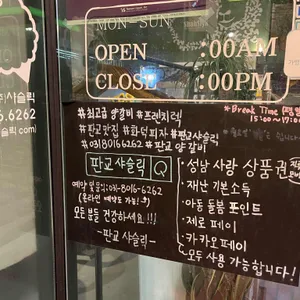 MON-SUN
OPEN :00AM
CLOSE :00PM
*Break Time (평일)
15:00~17:00
#최고급 양갈비 #프렌치렉
#판교맛집 #화덕피자 #판교샤슬릭
#03180166262 #판교 양갈비
판교 샤슬릭 Q
예약 및 문의: 031-8016-6262
(온라인 예약도 가능!)
모든 분들 건강하세요!!!
-판교 샤슬릭-
·성남 사랑 상품권
·재난 기본소득
·아동 돌봄 포인트
·제로 페이
·카카오페이
모두 사용 가능합니다!
샤슬릭
6.6262
슬릭
com)